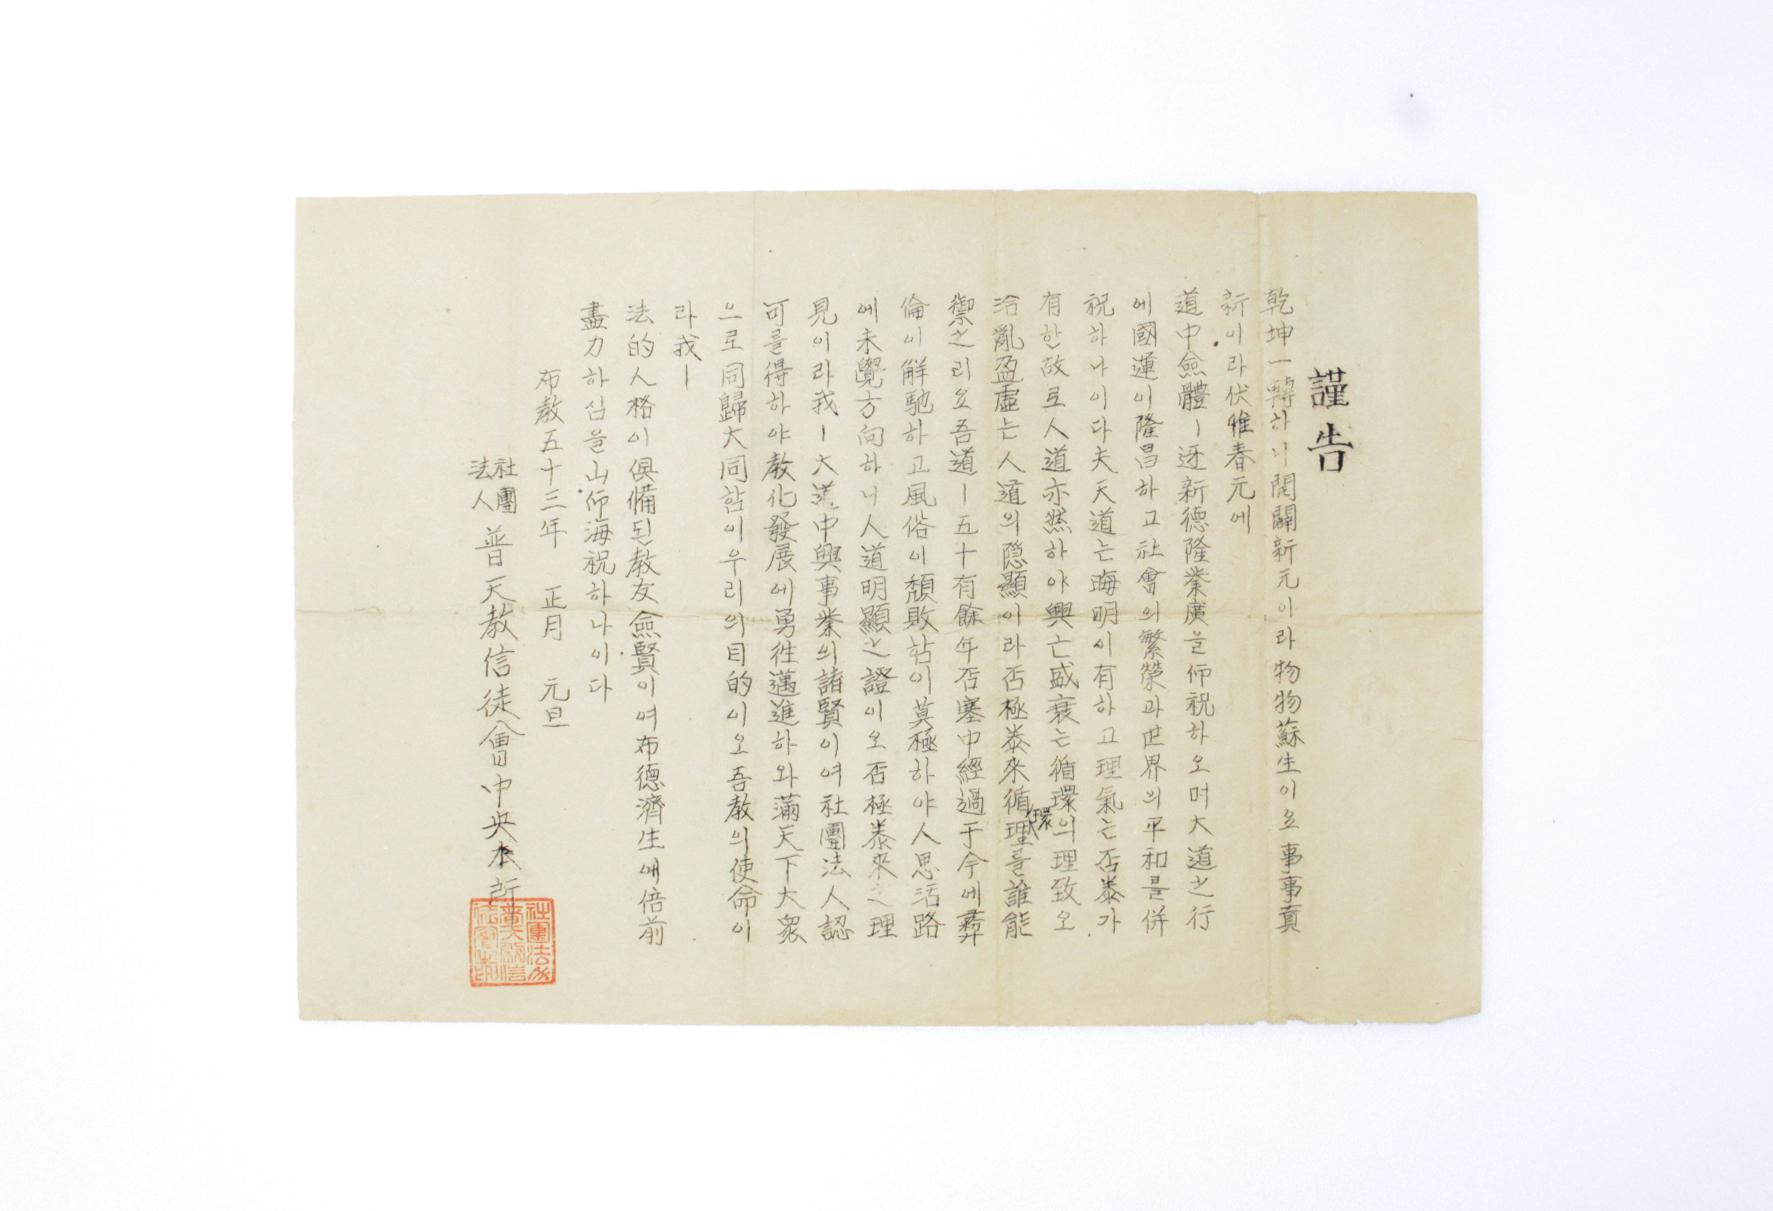 謹告
乾坤一轉하니開闢新元이라物物蘇生이오事事賁
新이라伏惟春元에
道中僉體ㅣ迓新德隆業廣을仰祝하오며大道之行
에國運이隆昌하고社會의繁榮과世界의平和를倂
祝하나이다夫天道는晦明이有하고理氣는否泰가
有한故로人道亦然하야興亡盛衰는循環의理致오
治亂盈虛는人道의隱顯이라否極泰來循環理를誰能
禦之리오吾道ㅣ五十有餘年否塞中經過于今에彛
倫이解馳하고風俗이頹敗함이莫極하야人思活路
에未覺方向하니人道明顯之證이오否極泰來之理
見이라我ㅣ大道中興事業의諸賢이여社團法人認
可를得하야敎化發展에勇徃邁進하와滿天下大衆
으로同歸大同함이우리의目的이오吾敎의使命이
라我ㅣ
法的人格이俱備된敎友僉賢이여布德濟生에倍前
盡力하심을山仰海祝하나이다
布敎五十三年 正月 元旦
社團法人 普天敎信徒會中央本所